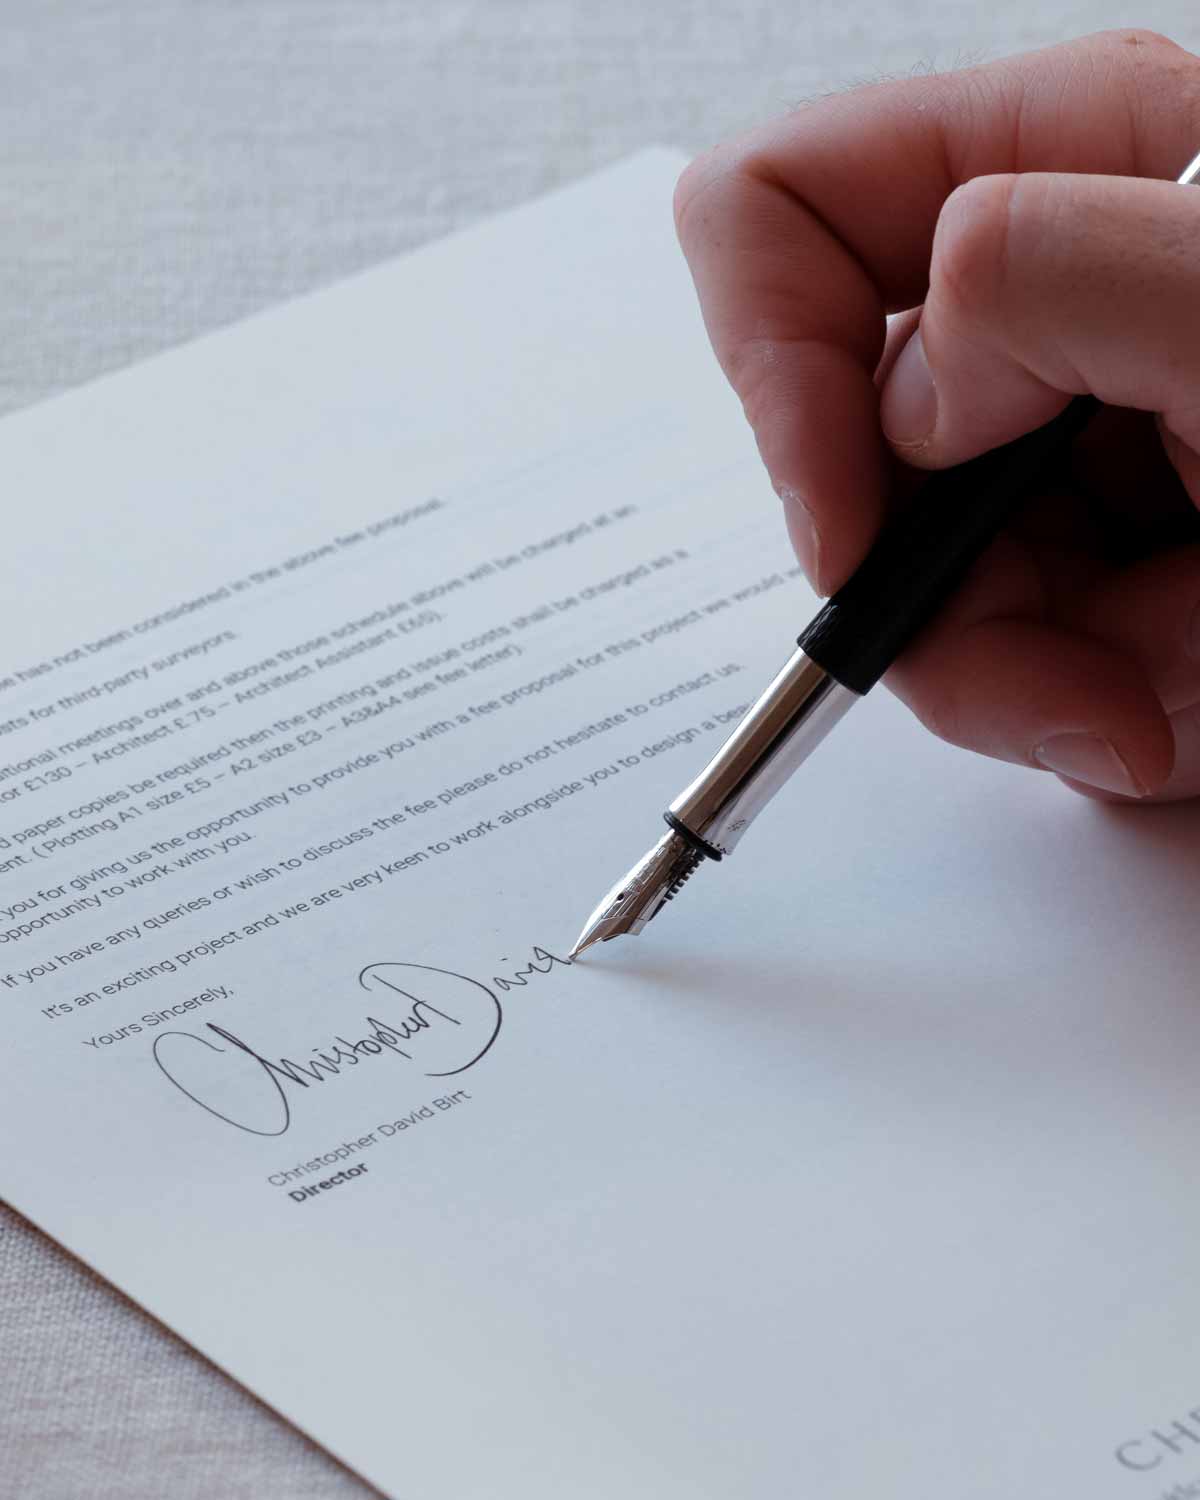 has not been considered in the above fee proposal.
for third-party surveyors.
meetings over and above those schedule above will be charged at an
£130 – Architect £75 – Architect Assistant £65).
paper copies be required then the printing and issue costs shall be charged as a
(Plotting A1 size £5 – A2 size £3 – A3&A4 see fee letter).
you for giving us the opportunity to provide you with a fee proposal for this project we would
opportunity to work with you.
If you have any queries or wish to discuss the fee please do not hesitate to contact us.
It's an exciting project and we are very keen to work alongside you to design a
Yours Sincerely,
Christopher David
Christopher David Birt
Director